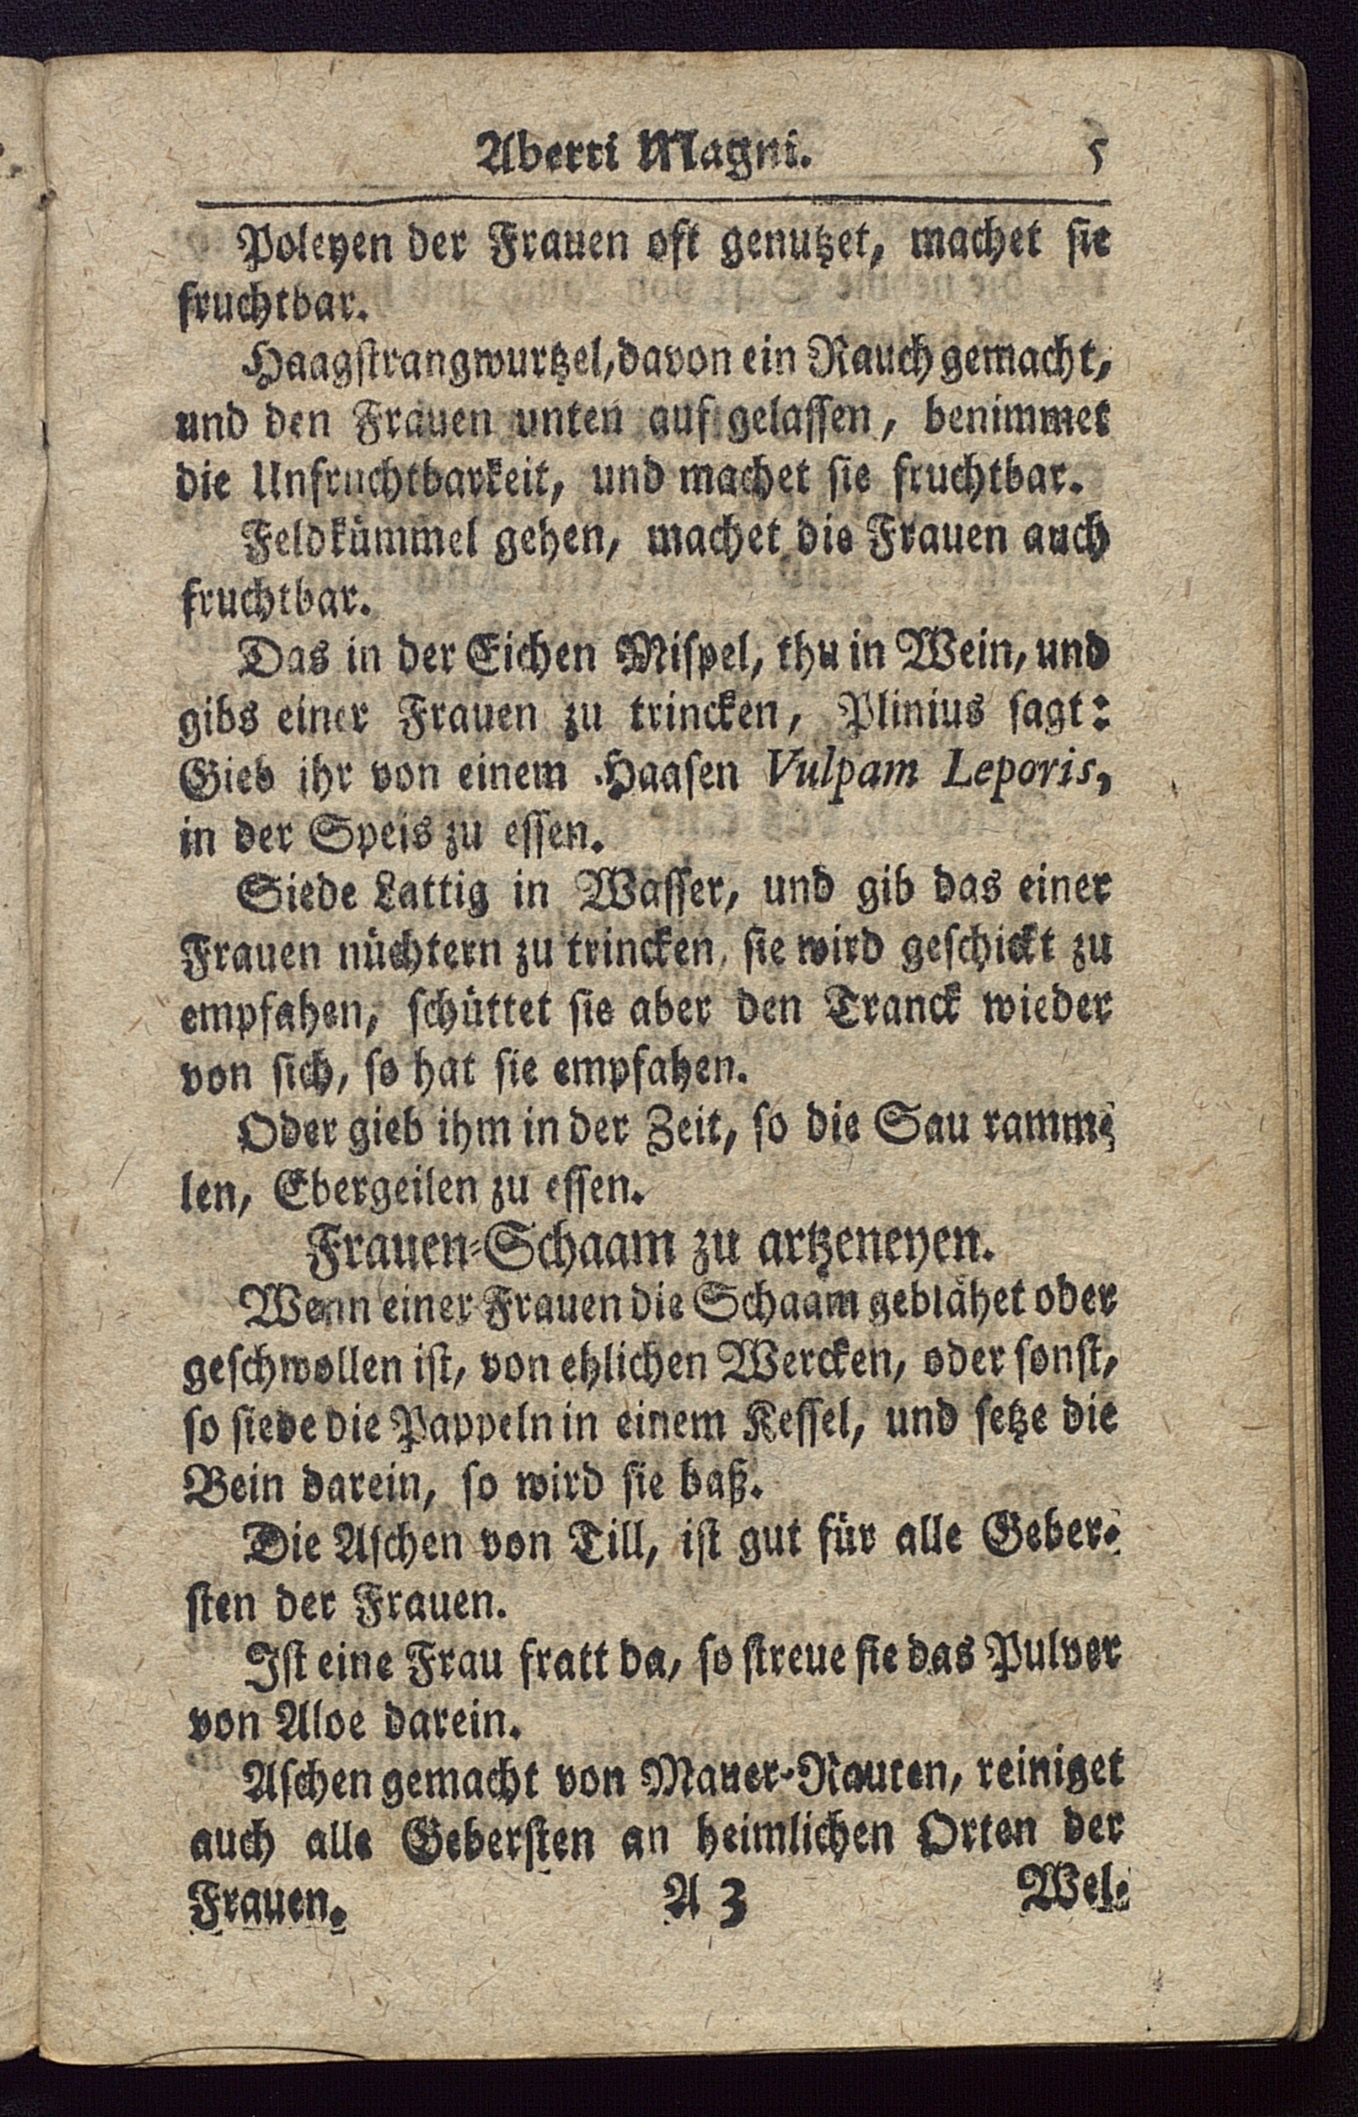 Aberti Magni. 5
Poleyen der Frauen oft genutzet, machet sie
fruchtbar.
Haagstrangwurtzel, davon ein Rauch gemacht,
und den Frauen unten auf gelassen, benimmet
die Unfruchtbarkeit, und machet sie fruchtbar.
Feldkümmel gehen, machet die Frauen auch
fruchtbar.
Das in der Eichen Mispel, thu in Wein, und
gibs einer Frauen zu trincken, Plinius sagt:
Gieb ihr von einem Haasen Vulpam Leporis,
in der Speis zu essen.
Siede Lattig in Wasser, und gib das einer
Frauen nüchtern zu trincken, sie wird geschickt zu
empfahen, schüttet sie aber den Tranck wieder
von sich, so hat sie empfahen.
Oder gieb ihm in der Zeit, so die Sau ramm-
len, Ebergeilen zu essen.
Frauen-Schaam zu artzeneyen.
Wenn einer Frauen die Schaam geblähet oder
geschwollen ist, von etzlichen Wercken, oder sonst,
so siede die Pappeln in einem Kessel, und setze die
Bein darein, so wird sie baß.
Die Aschen von Till, ist gut für alle Geber-
sten der Frauen.
Ist eine Frau fratt da, so streue sie das Pulver
von Aloe darein.
Aschen gemacht von Mauer-Rauten, reiniget
auch alle Gebersten an heimlichen Orten der
Frauen. A 3 Wel-